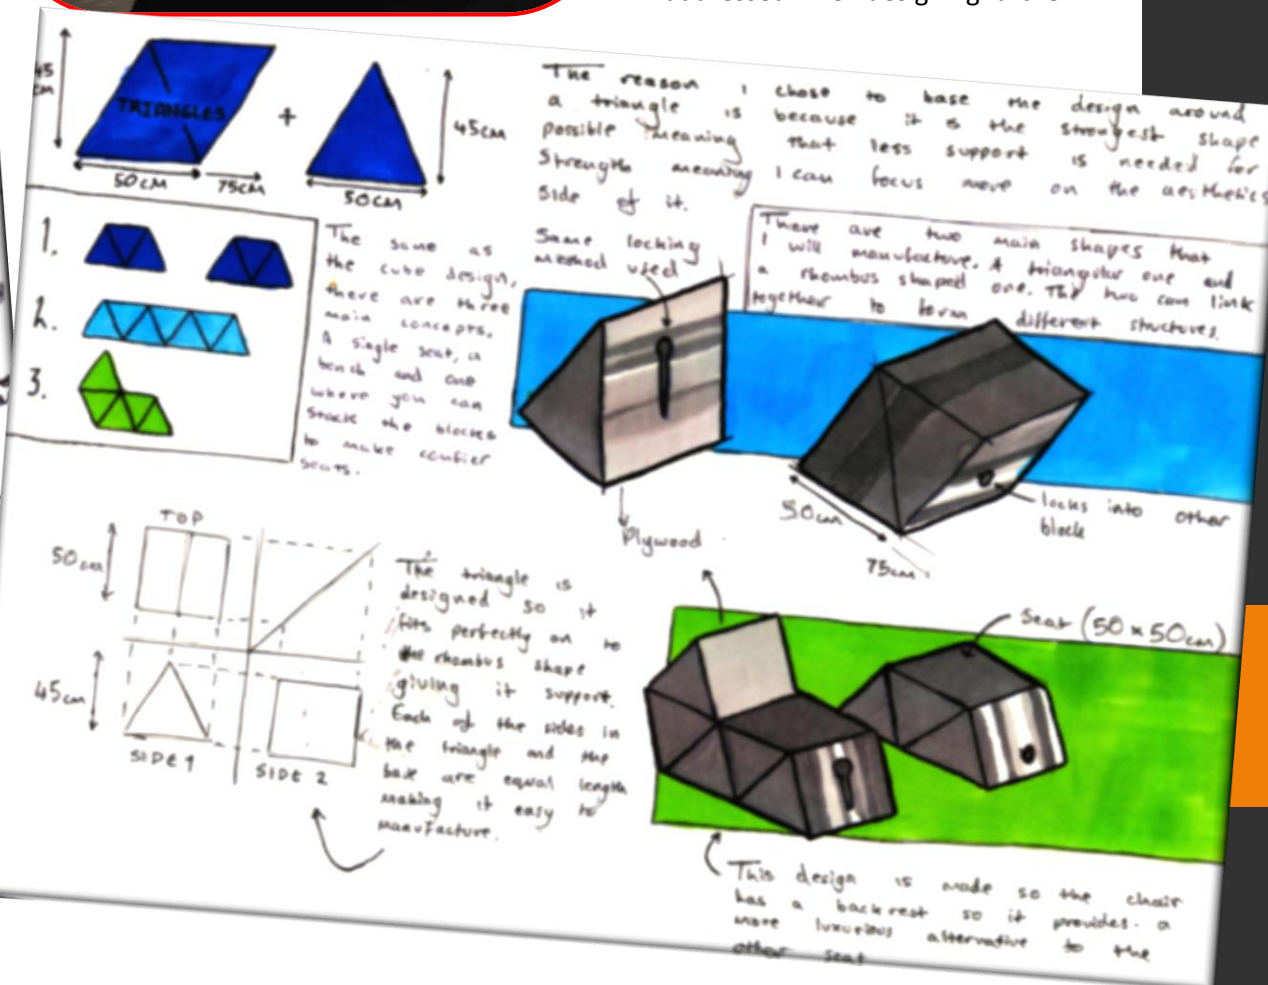 45
cm
TRIANGLES
+
45cm
50cm
75cm
50cm
The reason I chose to base the design around
a triangle is because it is the strongest shape
possible meaning that less support is needed for
Strength meaning I can focus more on the aesthetics
side of it.
1.
2.
3.
The same as
the cube design,
there are three
main concepts.
A single seat, a
bench and one
where you can
stack the blocks
to make comfier
seats.
Same locking
method used
There are two main shapes that
I will manufacture. A triangular one and
a rhombus shaped one. The two can link
together to form different structures.
Plywood
50cm
75cm
locks into other
block
TOP
50cm
45cm
SIDE 1
SIDE 2
The triangle is
designed so it
fits perfectly on to
the rhombus shape
giving it support.
Each of the sides in
the triangle and the
base are equal length
making it easy to
manufacture.
Seat (50 x 50cm)
This design is made so the chair
has a backrest so it provides a
more luxurious alternative to the
other seat